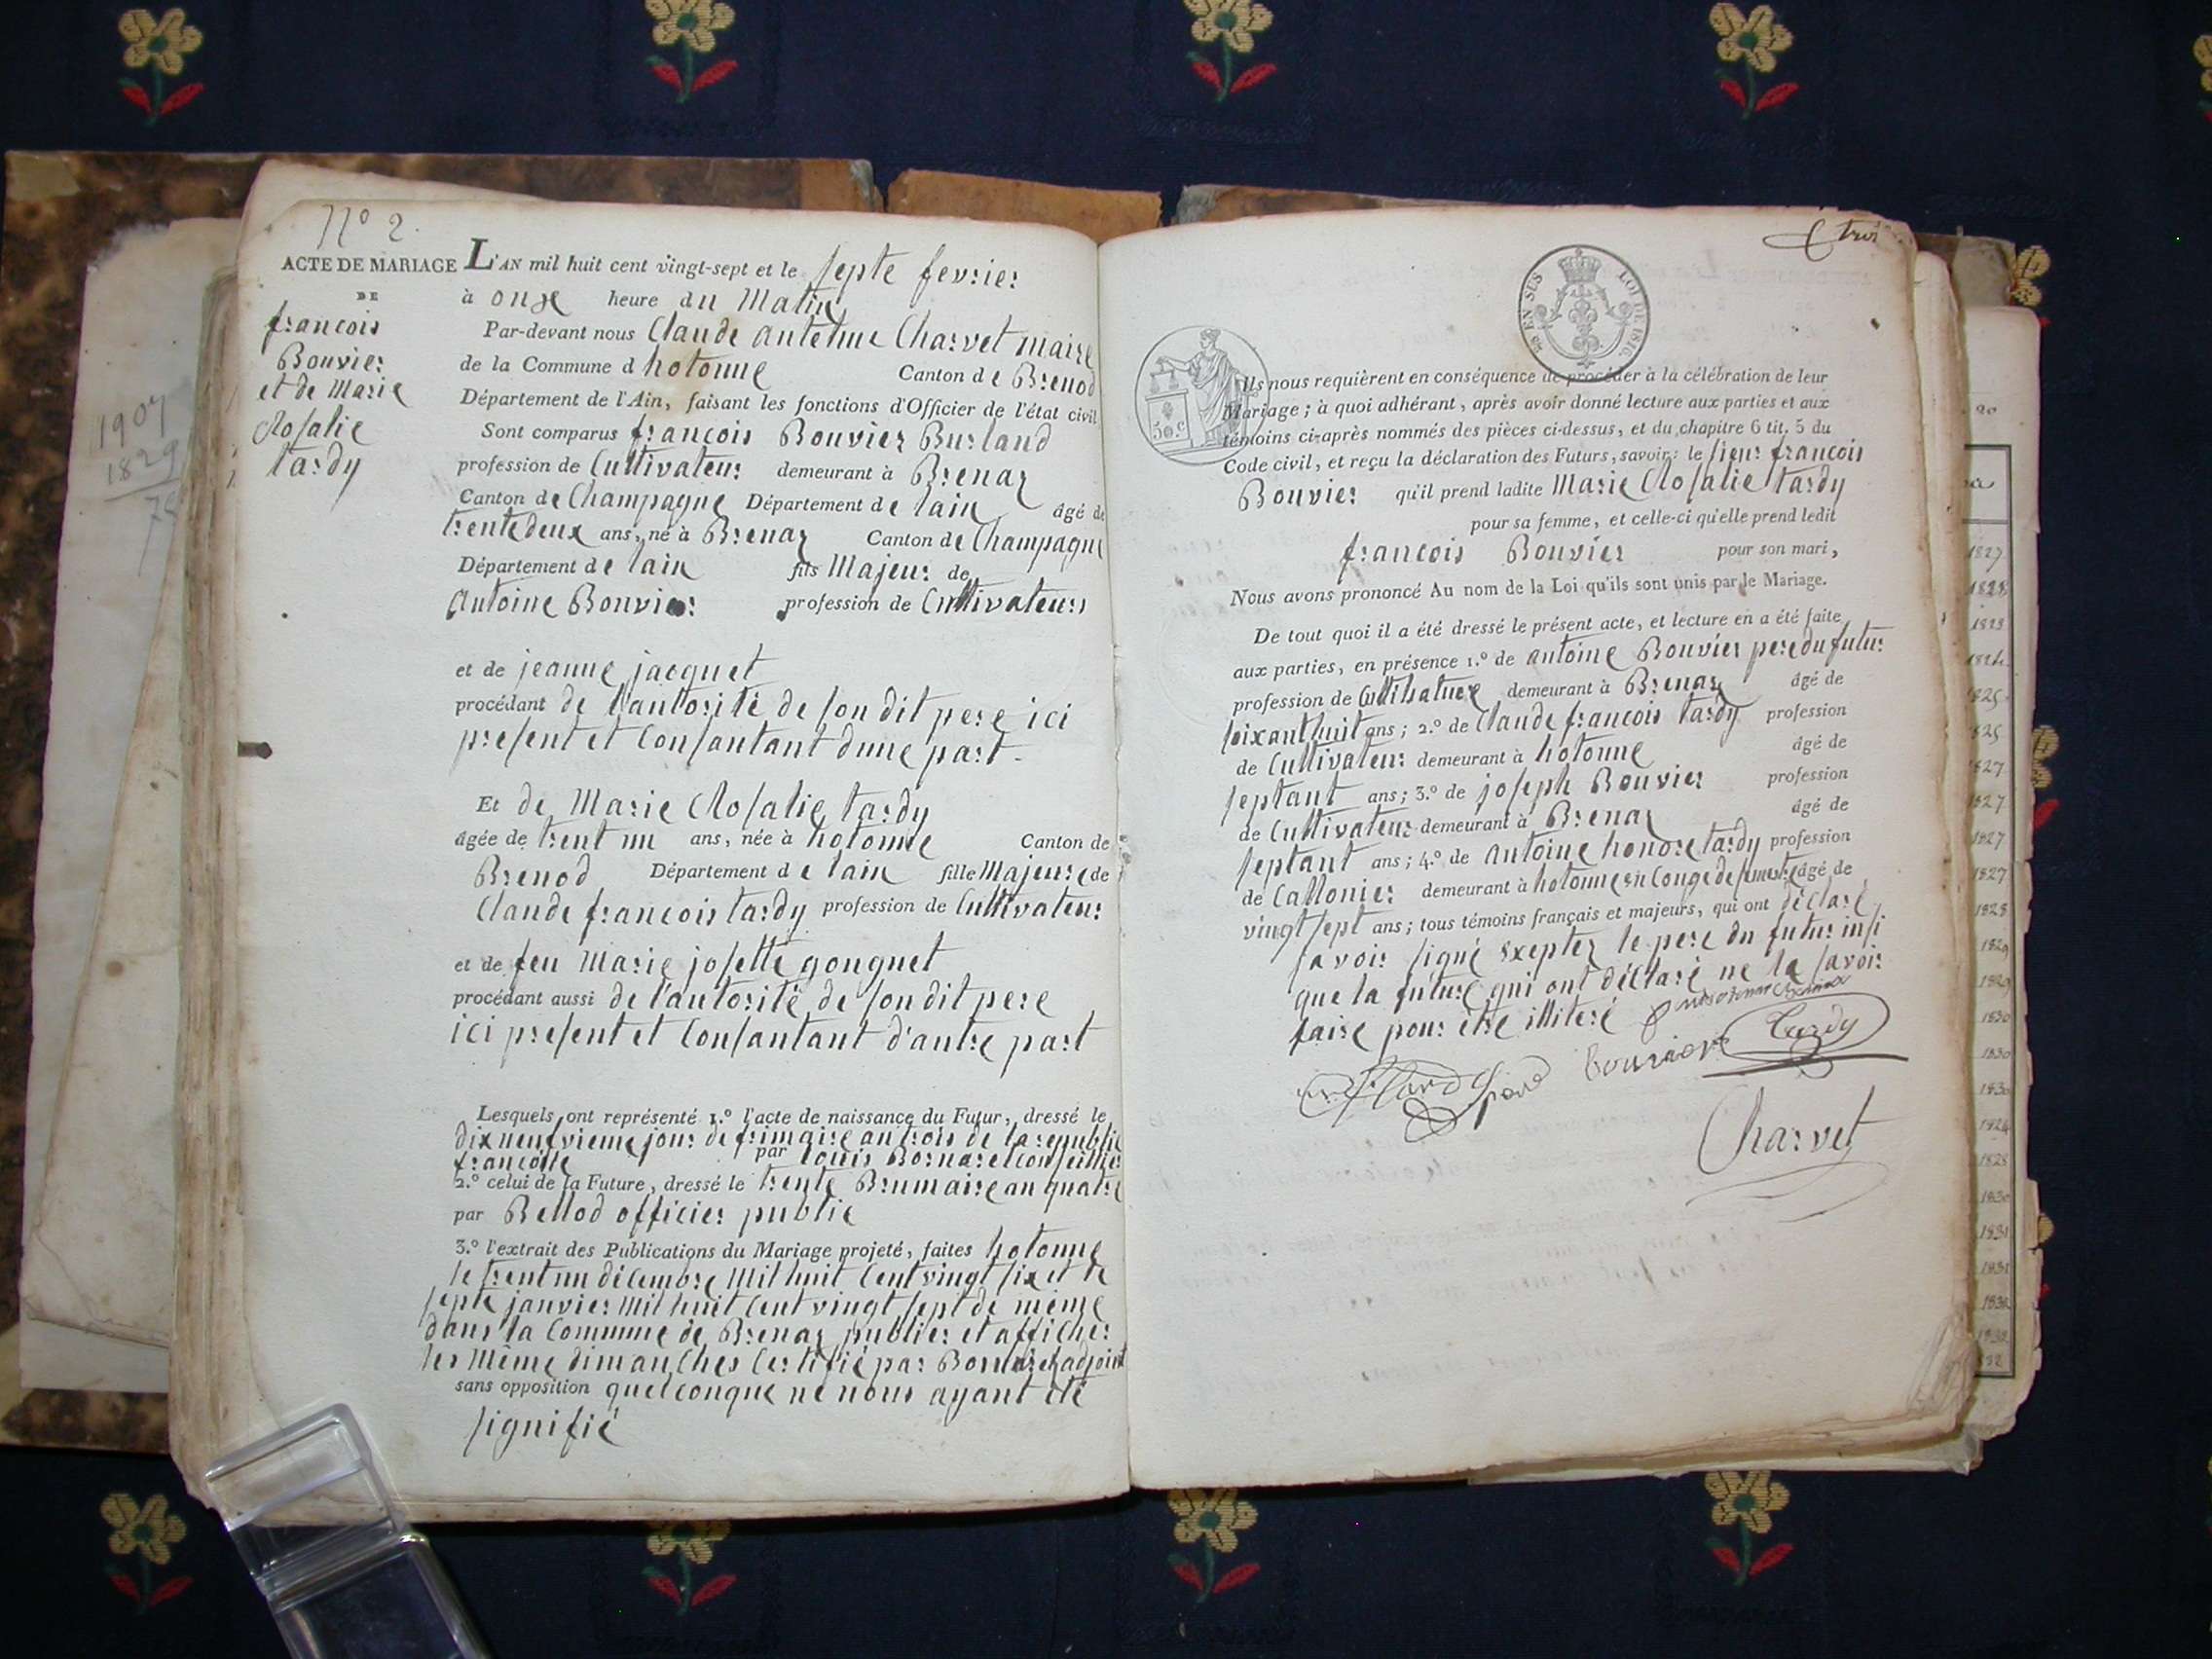 N.º 2.
ACTE DE MARIAGE
DE
francois
Bouvier
et de Marie
Rosalie
tardy
L'AN mil huit cent vingt-sept et le septe fevrier
à onze heure du Matin
Par-devant nous Claude Charvet maire
de la Commune d hotonne Canton de Brenod
Département de l'Ain, faisant les fonctions d'Officier de l'état civil
Sont comparus francois Bouvier Burland
profession de Cultivateur demeurant à Brenaz
Canton de Champagne Département de lain âgé de
trente deux ans, né à Brenaz Canton de Champagne
Département de lain fils Majeur de
Antoine Bouvier profession de Cultivateur
et de jeanne jacquet
procédant de l'autorité de son dit pere ici
present et Consantant dune part -
Et de Marie Rosalie tardy
âgée de trent un ans, née à hotonne Canton de
Brenod Département de lain fille Majeure de
Claude francois tardy profession de Cultivateur
et de feu Marie josette gouguet
procédant aussi de l'autorité de son dit pere
ici present et Consantant d'autre part
Lesquels ont représenté 1.º l'acte de naissance du Futur, dressé le
dix neufvieme jour de frimaire an trois de la republic
francoise par louis Bornarel conseillier
2.º celui de la Future, dressé le trente Brumaire an quatre
par Bellod officier public
3.º l'extrait des Publications du Mariage projeté, faites hotonne
le trent un décembre Mil huit Cent vingt six et le
septe janvier Mil huit Cent vingt sept de même
dans la Commune de Brenaz publier et afficher
les Même dimanches Certifié par Bornarel adjoint
sans opposition quelconque ne nous ayant été
signifié
trois
50 EN SUS LOI DE 1816.
50.c
Ils nous requièrent en conséquence de procéder à la célébration de leur
Mariage; à quoi adhérant, après avoir donné lecture aux parties et aux
témoins ci-après nommés des pièces ci-dessus, et du chapitre 6 tit. 5 du
Code civil, et reçu la déclaration des Futurs, savoir: le sieur francois
Bouvier qu'il prend ladite Marie Rosalie tardy
pour sa femme, et celle-ci qu'elle prend ledit
francois Bouvier pour son mari,
Nous avons prononcé Au nom de la Loi qu'ils sont unis par le Mariage.
De tout quoi il a été dressé le présent acte, et lecture en a été faite
aux parties, en présence 1.º de antoine Bouvier pere du futur
profession de demeurant à Brenaz âgé de
soixant huit ans; 2.º de Claude francois tardy profession
de Cultivateur demeurant à hotonne âgé de
septant ans; 3.º de joseph Bouvier profession
de Cultivateur demeurant à Brenaz âgé de
septant ans; 4.º de Antoine honore tardy profession
de Cattonier demeurant à hotonne en Conge de semestre âgé de
vingt sept ans; tous témoins français et majeurs, qui ont déclaré
savoir signé exeptez le pere du futur insi
que la future qui ont déclaré ne le savoir
faire pour être illiteré
Tardy
bouvier
Charvet
1907
1829
1827
1828
1825
1827
1827
1827
1827
1829
1829
1830
1830
1830
1830
1831
1831